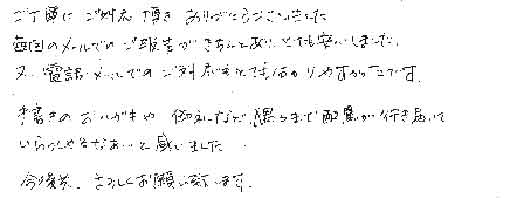 ご丁寧に ご対応 頂き ありがとうございました
毎回のメールでの ご報告が きちんとあり、とても安心しました。
又、電話・メールでの ご対応もとても分かりやすかったです。
手書きの おハガキや 御礼など、隅々まで配慮が行き届いて
いらっしゃるなあ、と感じました
今後共、よろしくお願い致します。